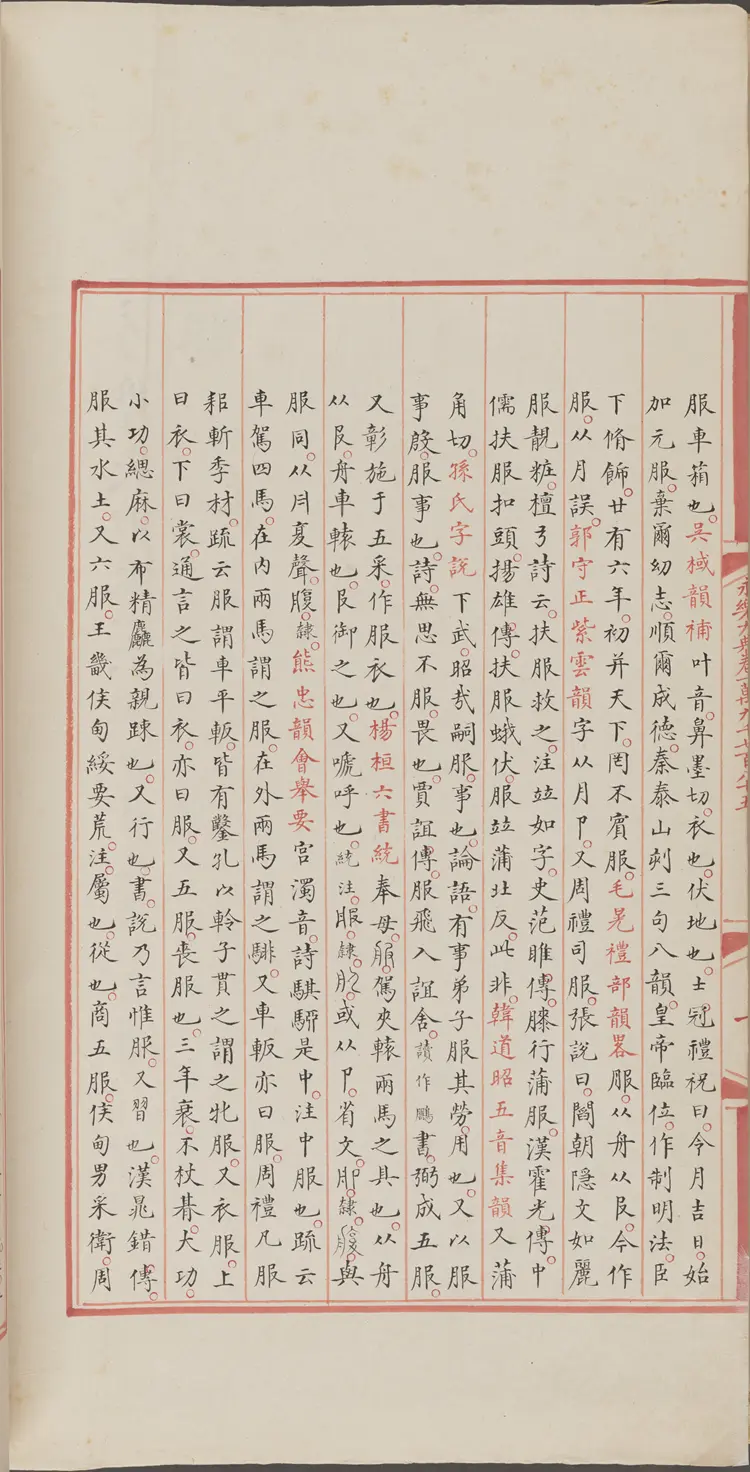 永樂大典卷一萬九千七百八十五
服車箱也。吳棫韻補叶音鼻墨切。衣也。伏地也。士冠禮祝曰。今月吉日。始
加元服。棄爾幼志。順爾成德。秦泰山刻三句八韻。皇帝臨位。作制明法。臣
下脩飾。廿有六年。初并天下。罔不賓服。毛晃禮部韻畧服。从舟从𠬝。今作
服。从月誤。郭守正紫雲韻字从月卩。又周禮司服。張說曰。閽朝隠文如麗
服靚粧。檀弓詩云。扶服救之。注竝如字。史范雎傳。膝行蒲服。漢霍光傳。中
儒扶服扣頭。揚雄傳。扶服蛾伏。服竝蒲北反。此非。韓道昭五音集韻又蒲
角切。孫氏字說下武。昭㢤嗣服。事也。論語。有事弟子服其勞。用也。又以服
事殷。服事也。詩。無思不服。畏也。賈誼傳。服飛入誼舍。讀作鵩。書。弼成五服。
又彰施于五采。作服衣也。楊桓六書統奉母。服。駕夾轅兩馬之具也。从舟
从𠬝。舟車轅也。𠬝御之也。又嘑呼也。統注。服。隷。或从卩。省文。隷。與
服同。从月夏聲。腹。隷。熊忠韻會舉要宮濁音。詩騏騮是中。注中服也。疏云
車駕四馬。在內兩馬謂之服。在外兩馬謂之騑。又車軓亦曰服。周禮凡服
耜斬季材。疏云服謂車平軓。皆有鑿孔以軨子貫之謂之牝服。又衣服。上
曰衣。下曰裳。通言之皆曰衣。亦曰服。又五服。喪服也。三年衰。不杖朞。大功。
小功。緦麻。以布精麤為親踈也。又行也。書。說乃言惟服。又習也。漢晁錯傳。
服其水土。又六服。王畿侯甸綏要荒。注。屬也。從也。商五服。侯甸男采衛。周